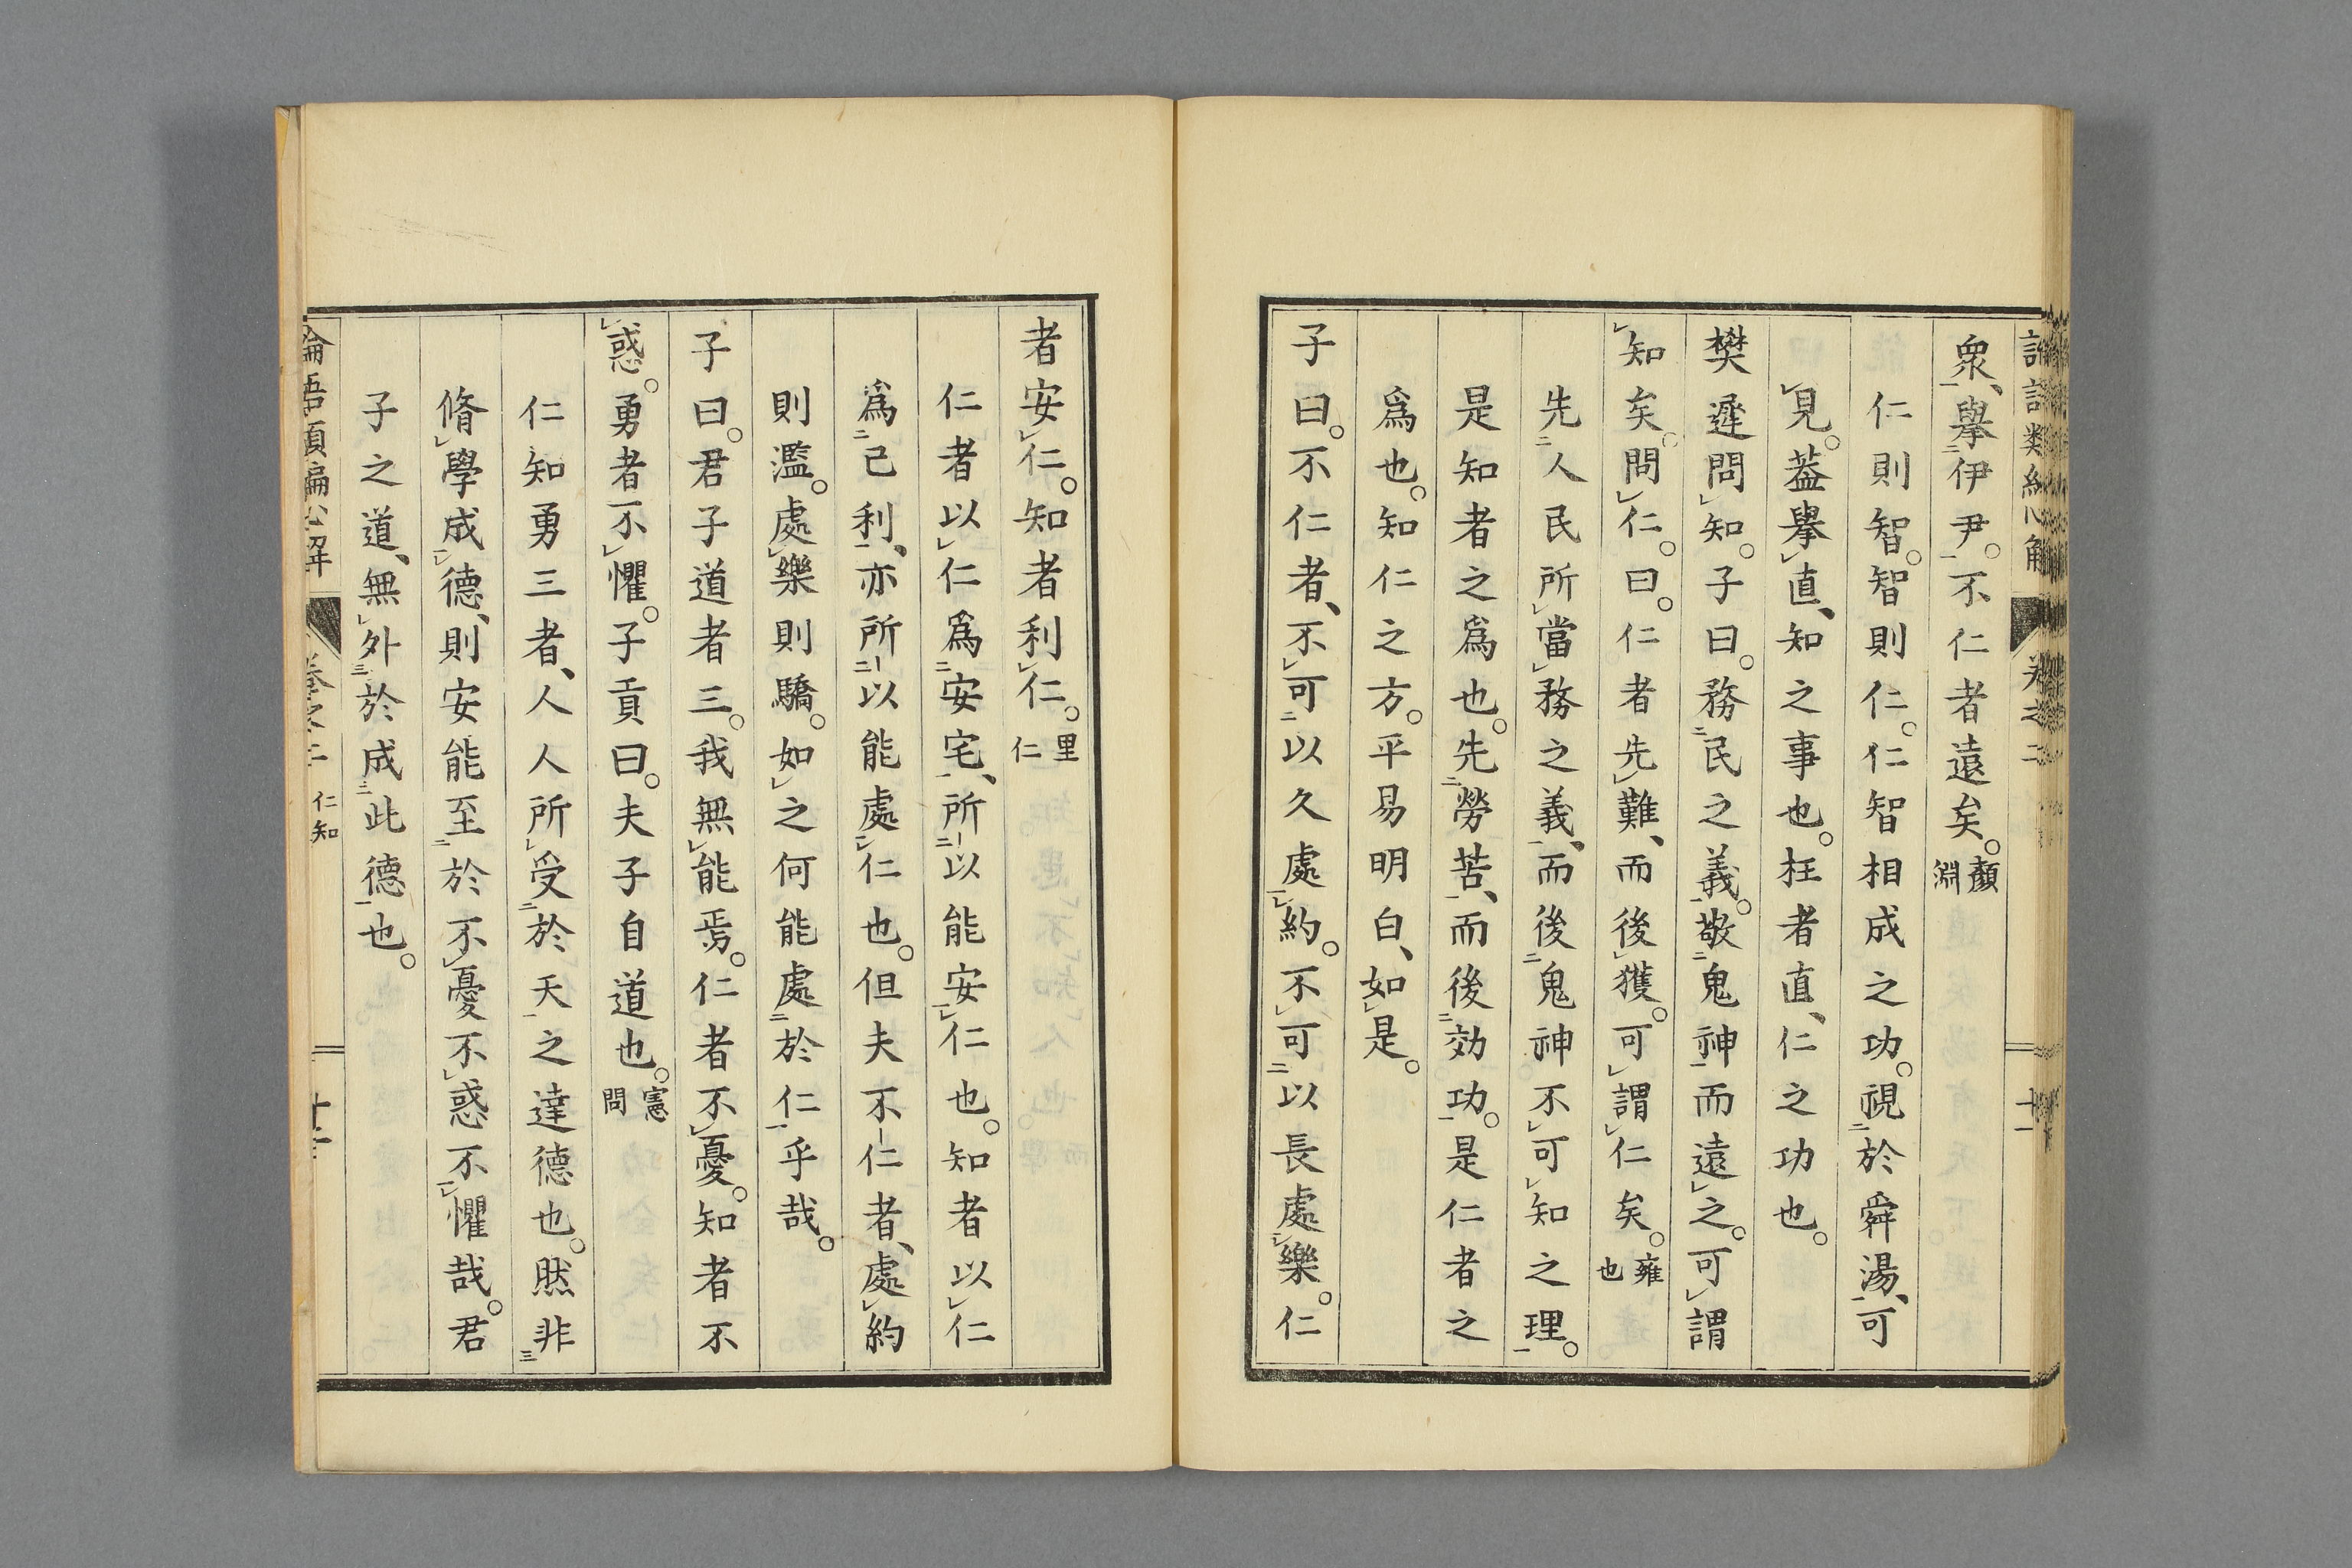 衆、擧伊尹。不仁者遠矣。顏淵
仁則智。智則仁。仁智相成之功。視於舜湯、可
見。蓋擧直、知之事也。枉者直、仁之功也。
樊遲問知。子曰。務民之義。敬鬼神而遠之。可謂
知矣。問仁。曰。仁者先難、而後獲。可謂仁矣。雍也
先人民所當務之義、而後鬼神不可知之理。
是知者之爲也。先勞苦、而後効功。是仁者之
爲也。知仁之方。平易明白、如是。
子曰。不仁者、不可以久處約。不可以長處樂。仁
者安仁。知者利仁。里仁
仁者以仁爲安宅、所以能安仁也。知者以仁
爲己利、亦所以能處仁也。但夫不仁者、處約
則濫。處樂則驕。如之何能處於仁乎哉。
子曰。君子道者三。我無能焉。仁者不憂。知者不
惑。勇者不懼。子貢曰。夫子自道也。憲問
仁知勇三者、人人所受於天之達德也。然非
脩學成德、則安能至於不憂不惑不懼哉。君
子之道、無外於成此德也。
卷之二 仁知